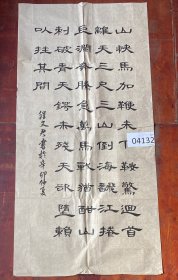 山快馬加鞭未下鞍驚迴首
離天三尺三山倒海翻江捲
巨瀾奔騰急萬馬戰猶酣山
刺破青天鍔未殘天欲墮賴
以拄其間
書於 卯仲夏
04132